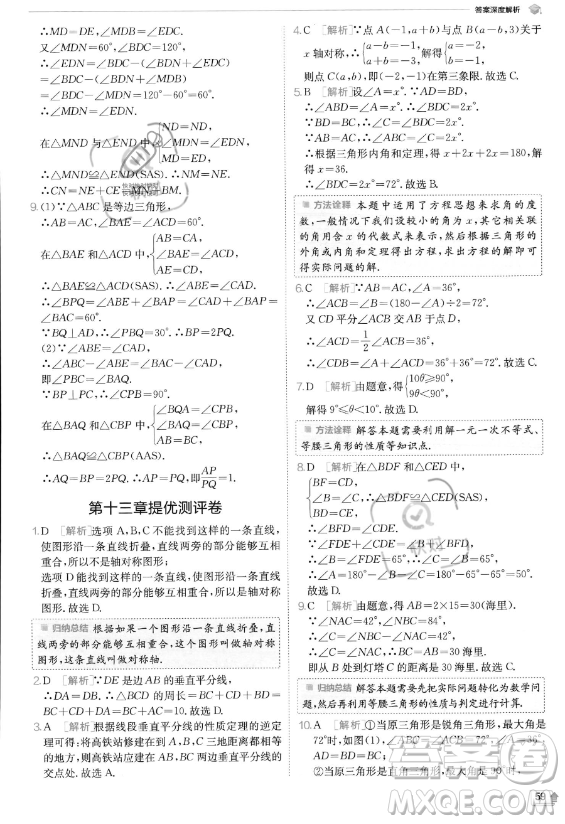 答案深度解析
∴MD=DN=ND.
又∠MDN=60°,∠BDC=120°,
∴∠EDN=∠BDC-∠MDN=60°.
∴∠BDC-∠MDN=120°-60°=60°.
∴∠MDN=∠EDN.
在△MND与△END中,{ND=ND,
MD=ED,
∴△MND≌△END(SAS).∴MN=NE.
∴CN=NE+CE=MN+BM.
9.(1)∵△ABC是等边三角形,
∴AB=AC,∠BAE=∠ACD=60°.
在△BAE和△ACD中,{AB=CA,
∠BAE=∠ACD,
AE=CD,
∴△BAE≌△ACD(SAS).∴∠ABE=∠CAD.
∴∠BPQ=∠ABE+∠BAP=∠CAD+
∠BAP=∠BAC=60°.
∵BQ⊥AD,∴∠PBQ=30°.∴BP=2PQ.
(2)∵∠ABE=∠CAD,
∴∠ABC-∠ABE=∠BAC-∠CAD,
即∠PBC=∠BAQ.
∵BP⊥PC,∴∠BPC=90°.
在△BAQ和△CBP中,{∠BQA=∠CPB,
∠BAQ=∠CBP,
AB=BC,
∴△BAQ≌△CBP(AAS).
∴AQ=BP=2PQ.∴AP=PQ,即AP/PQ=1.
第十三章提优测评卷
1.D [解析]选项A,B,C不能找到这样的一条直线,
使图形沿一条直线折叠,直线两旁的部分能够互相
重合,所以不是轴对称图形.
选项D能找到这样的一条直线,使图形沿一条直
线折叠,直线两旁的部分能够互相重合,所以是轴
对称图形.故选D.
归纳总结 根据如果一个图形沿一条直线折叠,直
线两旁的部分能够互相重合,这个图形叫做轴对称
图形,这条直线叫做对称轴.
2.D [解析]∵DE是边AB的垂直平分线,
∴DA=DB.∴△BCD的周长=BC+CD+DB=
BC+CD+DA=BC+AC=18.故选D.
3.A [解析]根据线段垂直平分线的性质定理的逆定
理可得:将高铁站修建在到三座城镇的距离相等
的地方,则高铁站应建在AB,BC两边垂直平分线的
交点处.故选A.
4.C [解析]∵点A(-1,a+b)与点B(a-b,3)关于
x轴对称,∴{a-b=-1,
a+b=-3,
解得{a=-2,
b=-1,
则点C(a,b),即(-2,-1)在第三象限.故选C.
5.B [解析]设∠A=x°.∵AD=BD,
∴∠ABD=∠A=x°.∴∠BDC=2x°.
∵BD=BC,∴∠C=∠BDC=2x°.
∵AB=AC,∴∠ABC=∠C=2x°.
∴根据三角形内角和定理,得x+2x+2x=180,解
得x=36.
∴∠BDC=2x°=72°.故选B.
方法诠释 本题中运用了方程思想来求角的度
数,一般情况下,我们设较小的角为x°,则其他
的角用含x的代数式来表示,然后根据三角形的
外角和内角和定理得出方程,求出方程的解即可
得实际问题的解.
6.C [解析]∵AB=AC,∠A=36°,
∴∠ACB=∠B=(180°-∠A)÷2=72°.
又CD平分∠ACB交AB于点D,
∴∠ACD=1/2∠ACB=36°.
∴∠CDB=∠A+∠ACD=36°+36°=72°.故选C.
7.D [解析]由题意,得{10θ≥90°,
9θ<90°,
解得9°≤θ<10°.故选D.
方法诠释 解答本题需要利用解一元一次不等式、
等腰三角形的性质等知识.
8.D [解析]在△BDF和△CED中,
{BF=CD,
∠B=∠C,
BD=CE,
∴△BDF≌△CED(SAS).∴∠BFD=∠CDE.
∵∠FDE+∠CDE=∠B+∠BFD,
∴∠FDE=∠B=65°.故选D.
9.C [解析]由题意,得AB=2×15=30(海里).
∵∠C=∠NBC-∠NAC=42°,
∴∠C=∠NAC.∴BC=AB=30(海里),
即从B处到灯塔C的距离是30海里.故选C.
归纳总结 解答本题要先把实际问题转化为数学问
题,再利用等腰三角形的性质与判定进行计算.
10.A [解析]①当原三角形是锐角三角形,最大角是
72°时,如图(1).
②当原三角形是直角三角形,最大角是90°时,如
59